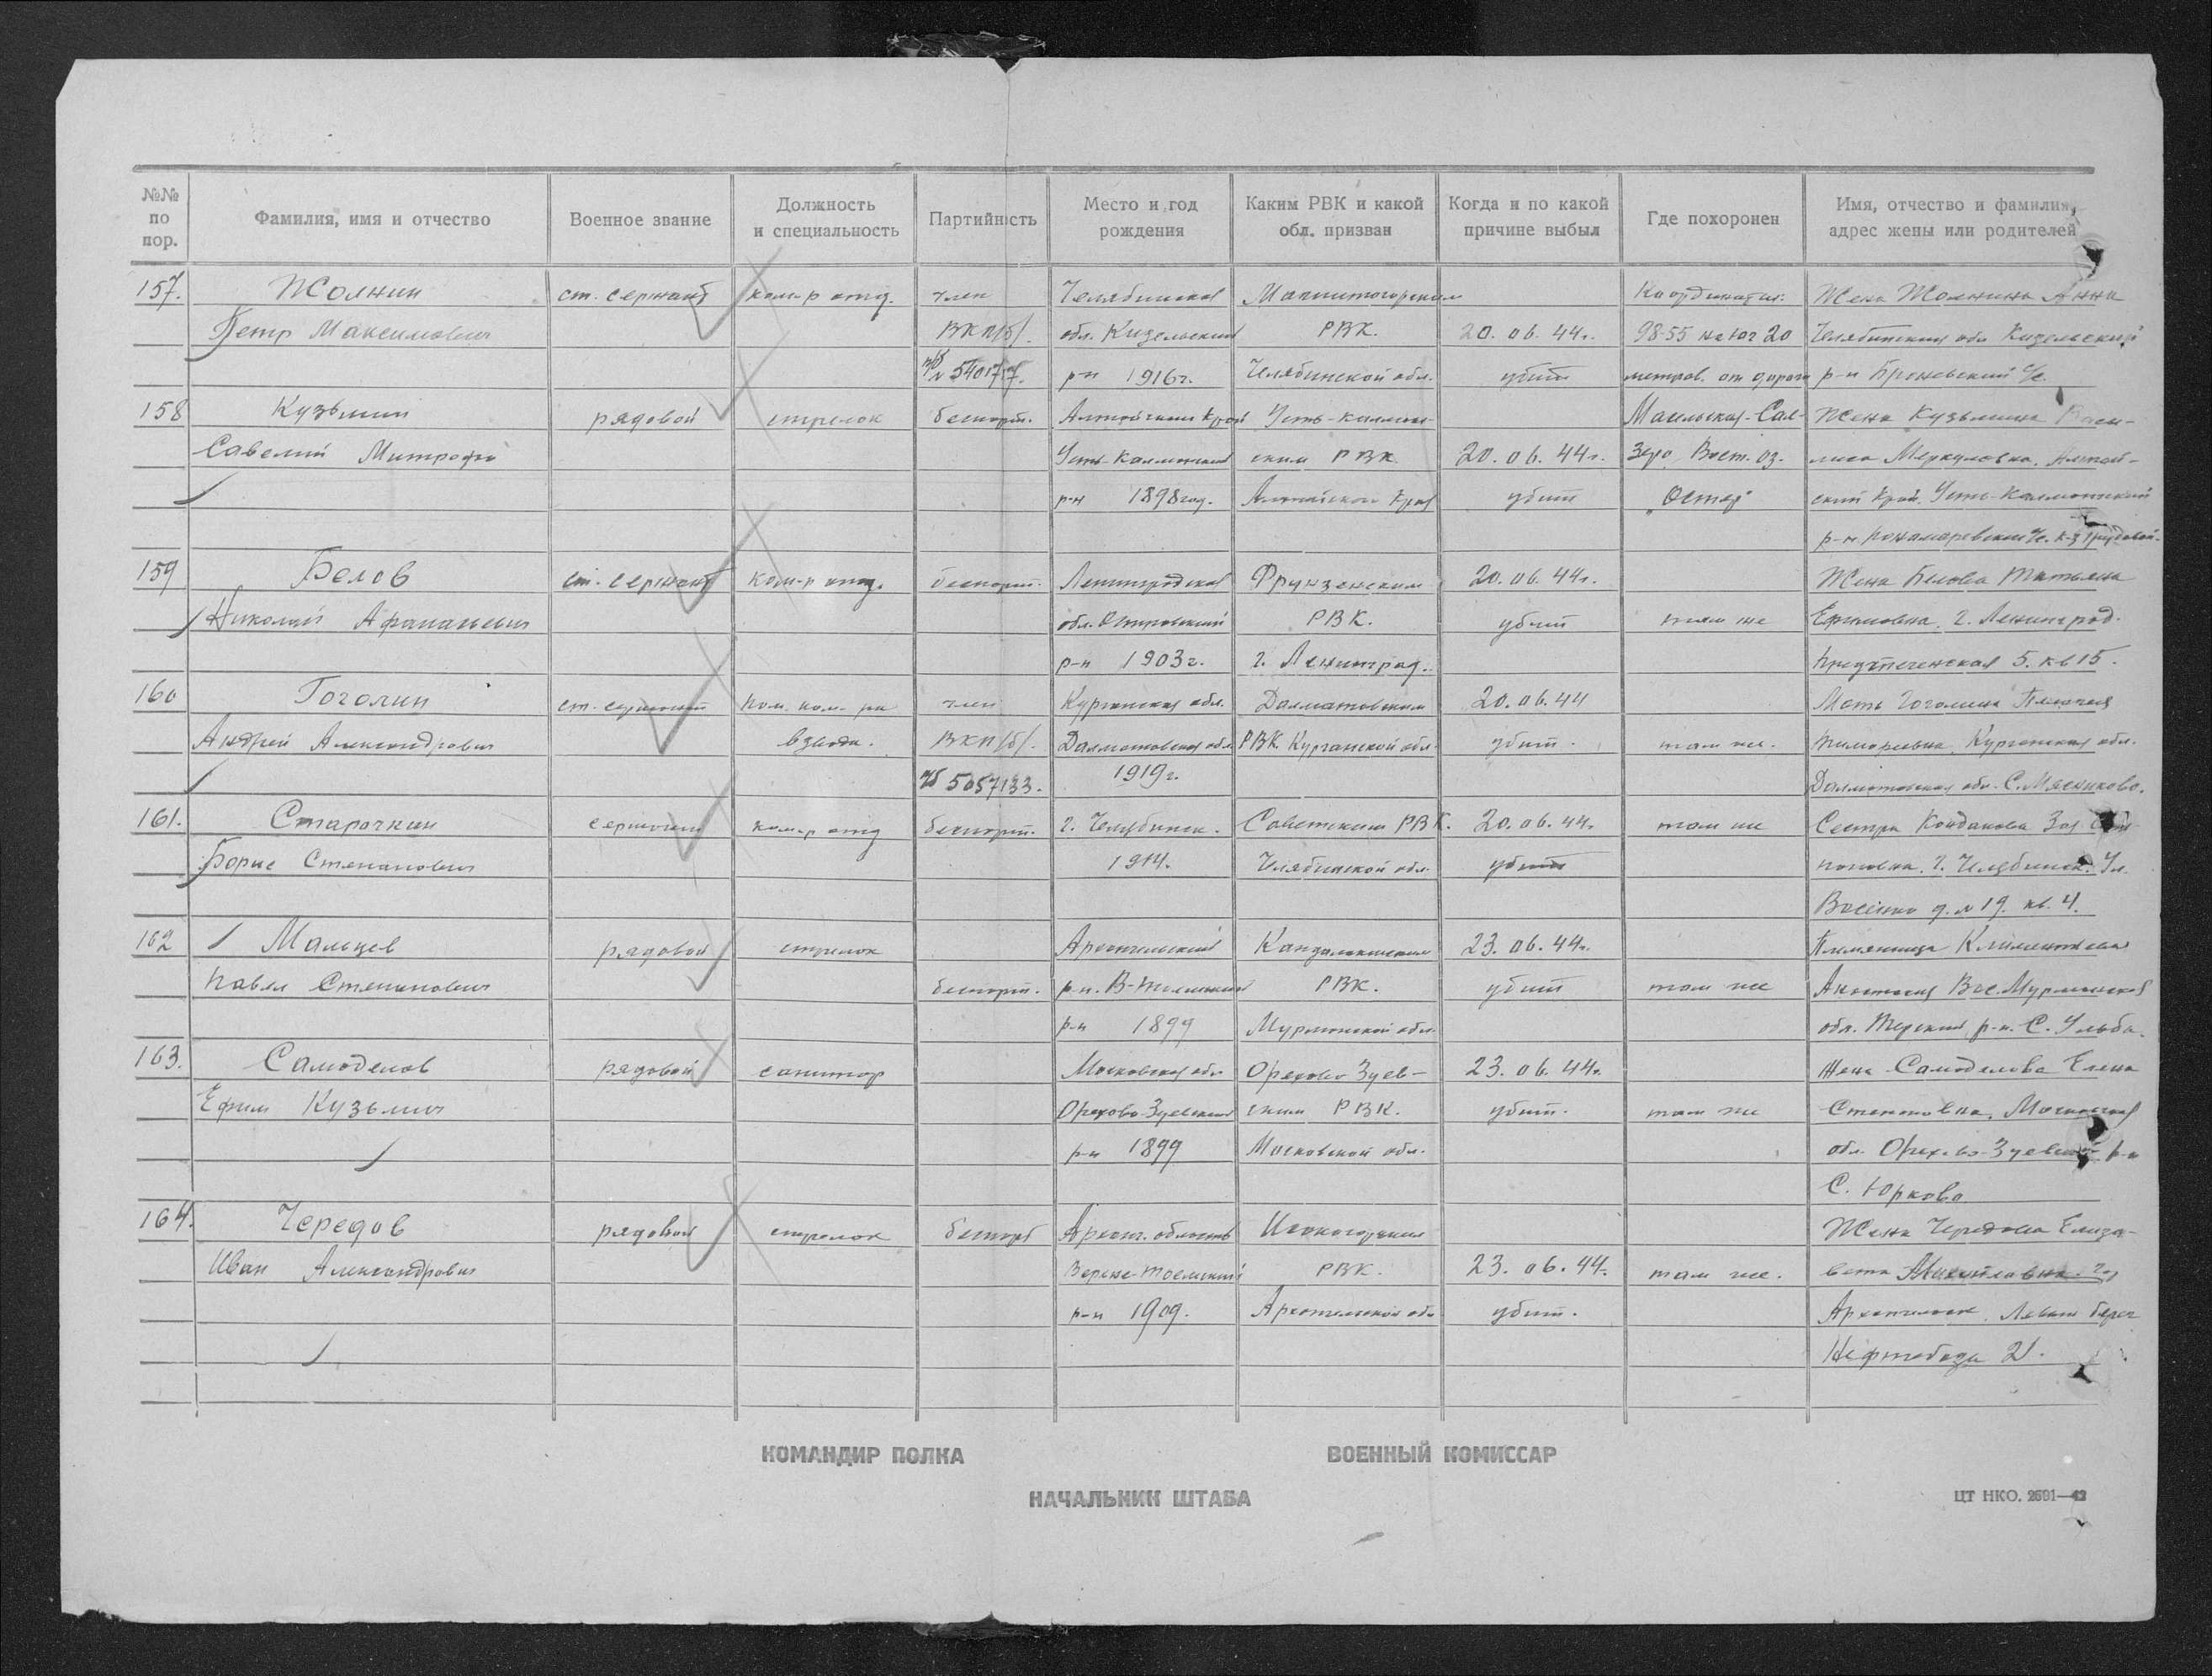 №№ по пор.
Фамилия, имя и отчество
Военное звание
Должность и специальность
Партийность
Место и год рождения
Каким РВК и какой обл. призван
Когда и по какой причине выбыл
Где похоронен
Имя, отчество и фамилия, адрес жены или родителей
157. Жолнин ст. сержант ком-р отд. член Челябинская Магнитогорским Координаты: Жена Жолнина Анна
Петр Максимович ВКП/б/. обл. Кизельский РВК. 20.06.44г. 98-55 на юг 20 Челябинская обл Кизельский
п/б № 5401717. р-н 1916г. Челябинской обл. убит метров. от дороги р-н с/с.
158 Кузьмин рядовой стрелок беспарт. Алтайский край Усть-калман- Масельская-Сал- Жена Кузьмина Васи-
Савелий Митрофа Усть-Калманский ским РВК 20.06.44г. Вост. оз. лиса Меркуловна. Алтай-
р-н 1898год. Алтайского края убит "Остер" ский край. Усть-Калманский
р-н Пономаревский с/с. к-з
159 Белов ст. сержант ком-р отд. беспарт. Ленинградская Фрунзенским 20.06.44г. Жена Белова Татьяна
Николай Афанасьевич обл. Островский РВК. убит там же Ефимовна, г. Ленинград.
р-н 1903г. г. Ленинград. 5. кв 15.
160 Гоголин ст. сержант пом. ком-ра член Курганская обл. Далматовским 20.06.44 Мать Гоголина Пелагея
Андрей Александрович взвода. ВКП/б/. Далматовская обл РВК. Курганской обл. убит. там же. Тимофеевна, Курганская обл.
п/б 5057133. 1919г. Далматовская обл. С. Мясниково.
161. Старочкин сержант ком-р отд беспарт. г. Челябинск. Советским РВК. 20.06.44г. там же Сестра Кондакова
Борис Степанович 1914. Челябинской обл. убит г. Челябинск. Ул.
д. № 19. кв. 4.
162 Мальцев рядовой стрелок Архангельский Кандалакшским 23.06.44г. Племянница
Павел Степанович беспарт. р-н. В-Тоемский РВК. убит там же Анастасия Вас. Мурманская
р-н 1899 Мурманской обл. обл. Терский р-н. С.
163. Самоделов рядовой санитар Московская обл. Орехово Зуев- 23.06.44г. Жена Самоделова Елена
Ефим Кузьмич Орехово-Зуевский ским РВК. убит. там же Степановна, Московская
р-н 1899 Московской обл. обл. Орехово-Зуевский р-н
С. Юрково
164. Чередов рядовой стрелок беспарт Арханг. область Исакогорским Жена Чередова Елиза-
Иван Александрович Верхне-Тоемский РВК. 23.06.44. там же. вета
р-н 1909. Архангельской обл убит. Архангельск. Левый берег
Нефтебаза 21.
КОМАНДИР ПОЛКА
ВОЕННЫЙ КОМИССАР
НАЧАЛЬНИК ШТАБА
ЦТ НКО. 2691—42